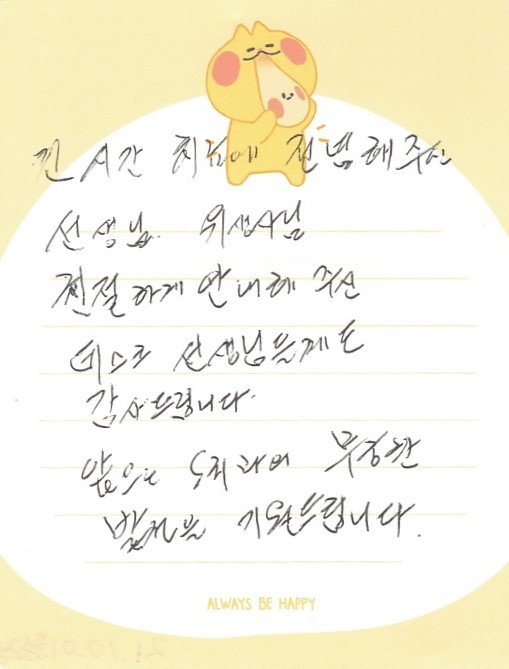 긴 시간 치료에 전념해주신
선생님. 위생사님
친절하게 안내해 주신
데스크 선생님들께도
감사드립니다.
앞으로 무궁한
발전을 기원드립니다.
ALWAYS BE HAPPY